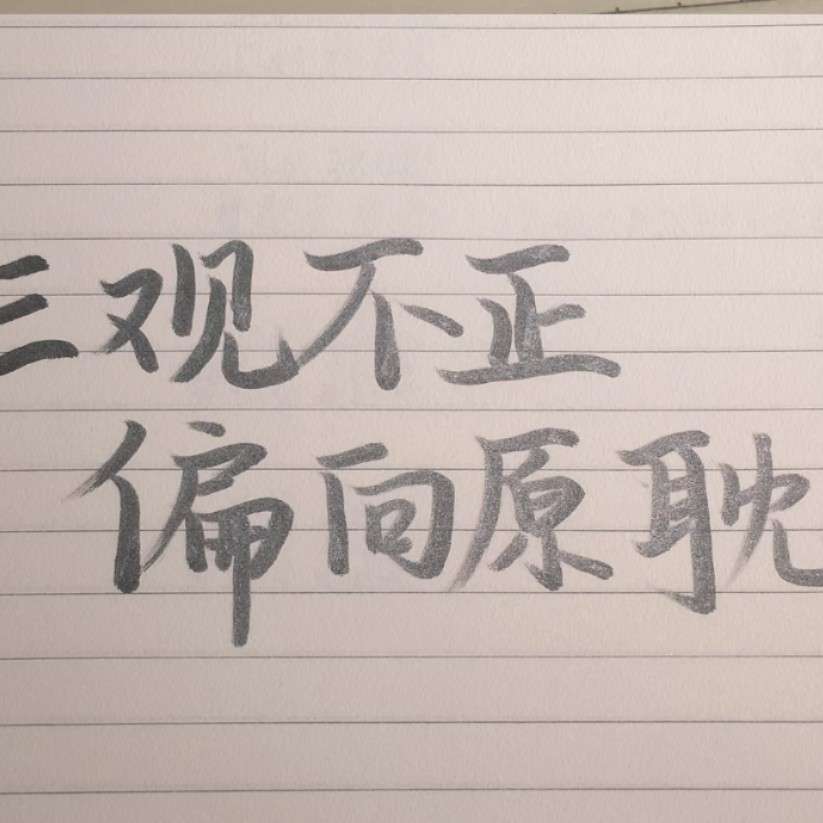 三观不正
偏向原耽